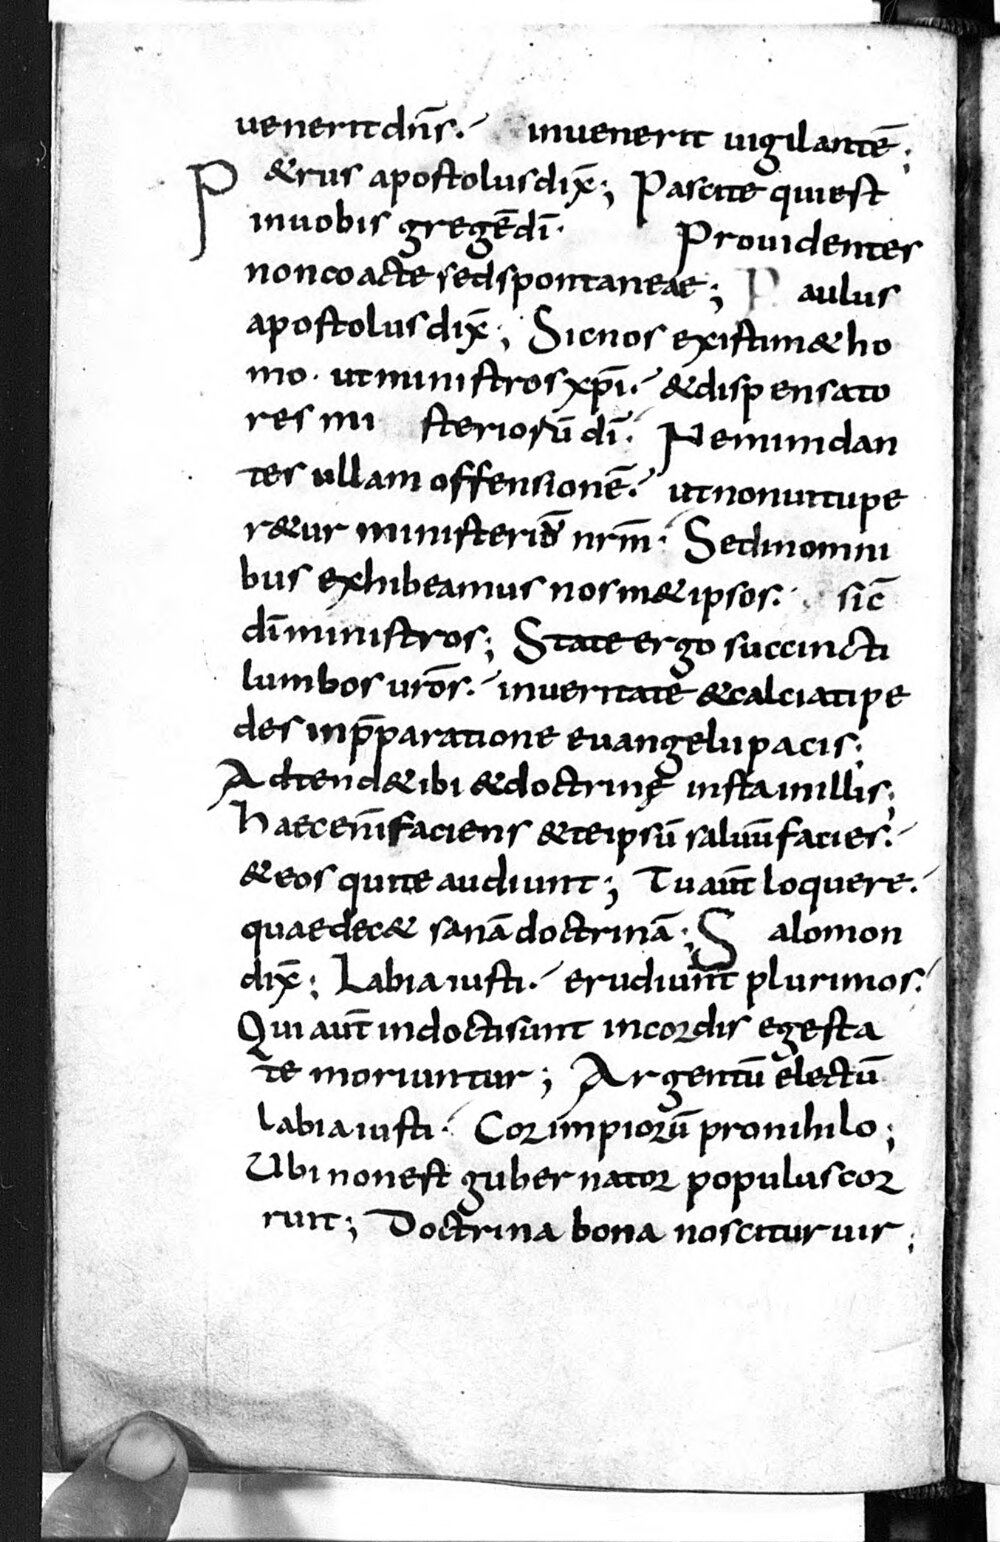 uenerit dn̄s. inuenerit uigilantē;
P&rus apostolus dix̄; Pascite qui est
in uobis gregē dī. Prouidentes
non coacte sed spontaneae; Paulus
apostolus dix̄; Sic nos existim& ho
mo. ut ministros xp̄i. & dispensato
res mi steriorū dī. Nemini dan
tes ullam offensionē. ut non uitupe
r&ur ministeriū nr̄m. Sed in omni
bus exhibeamus nosm&ipsos. sic̄
dī ministros; State ergo succincti
lumbos urōs. in ueritate & calciati pe
des in p̄paratione euangelii pacis;
Adtend& ibi & doctrinę insta in illis;
haec eni̅ faciens & te ipsū saluū facies.
& eos qui te audiunt; Tu aūt loquere.
quae dec& sanā doctrinā; Salomon
dix̄; Labia iusti. erudiunt plurimos.
Qui aūt indocti sunt in cordis egesta
te moriuntur; Argentū electū
labia iusti. Cor impiorū pro nihilo;
Ubi non est gubernator populus cor
ruit; Doctrina bona noscitur uir;